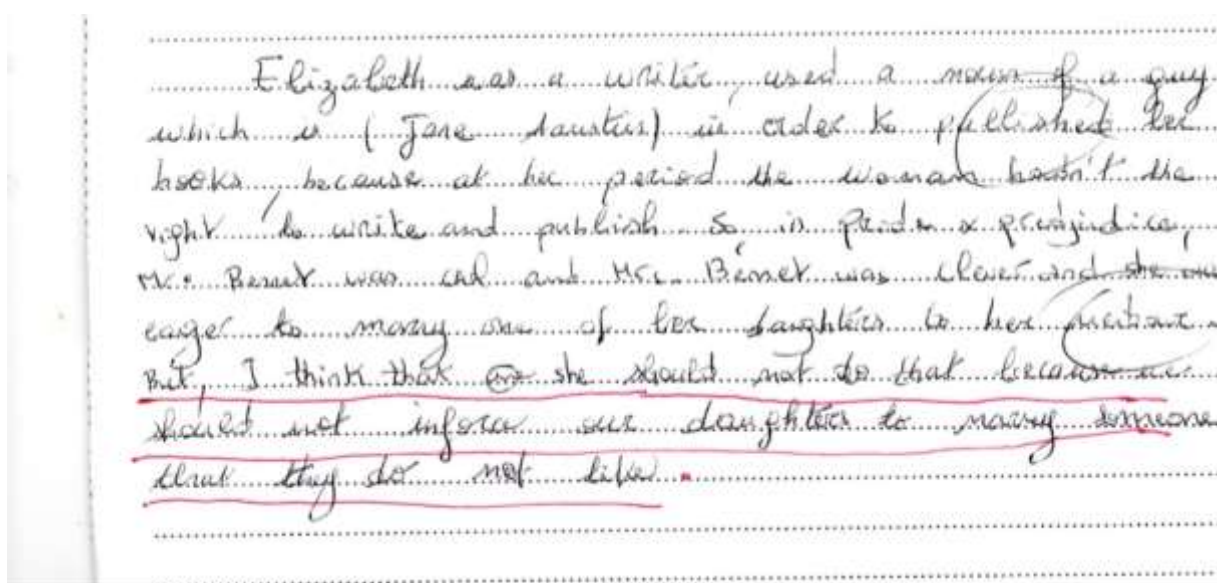 Elizabeth was a writer, used a noun of a guy
which is (Jane Austin) in order to published her
books, because at her period the woman hadn't the
right to write and publish. So in Pride & predjindice,
Mr. Bennet was and Mrs. Bennet was clever and she was
eager to marry one of her daughters to her
But, I think that she should not do that because we
should not inforce our daughters to marry someone
that they do not like.